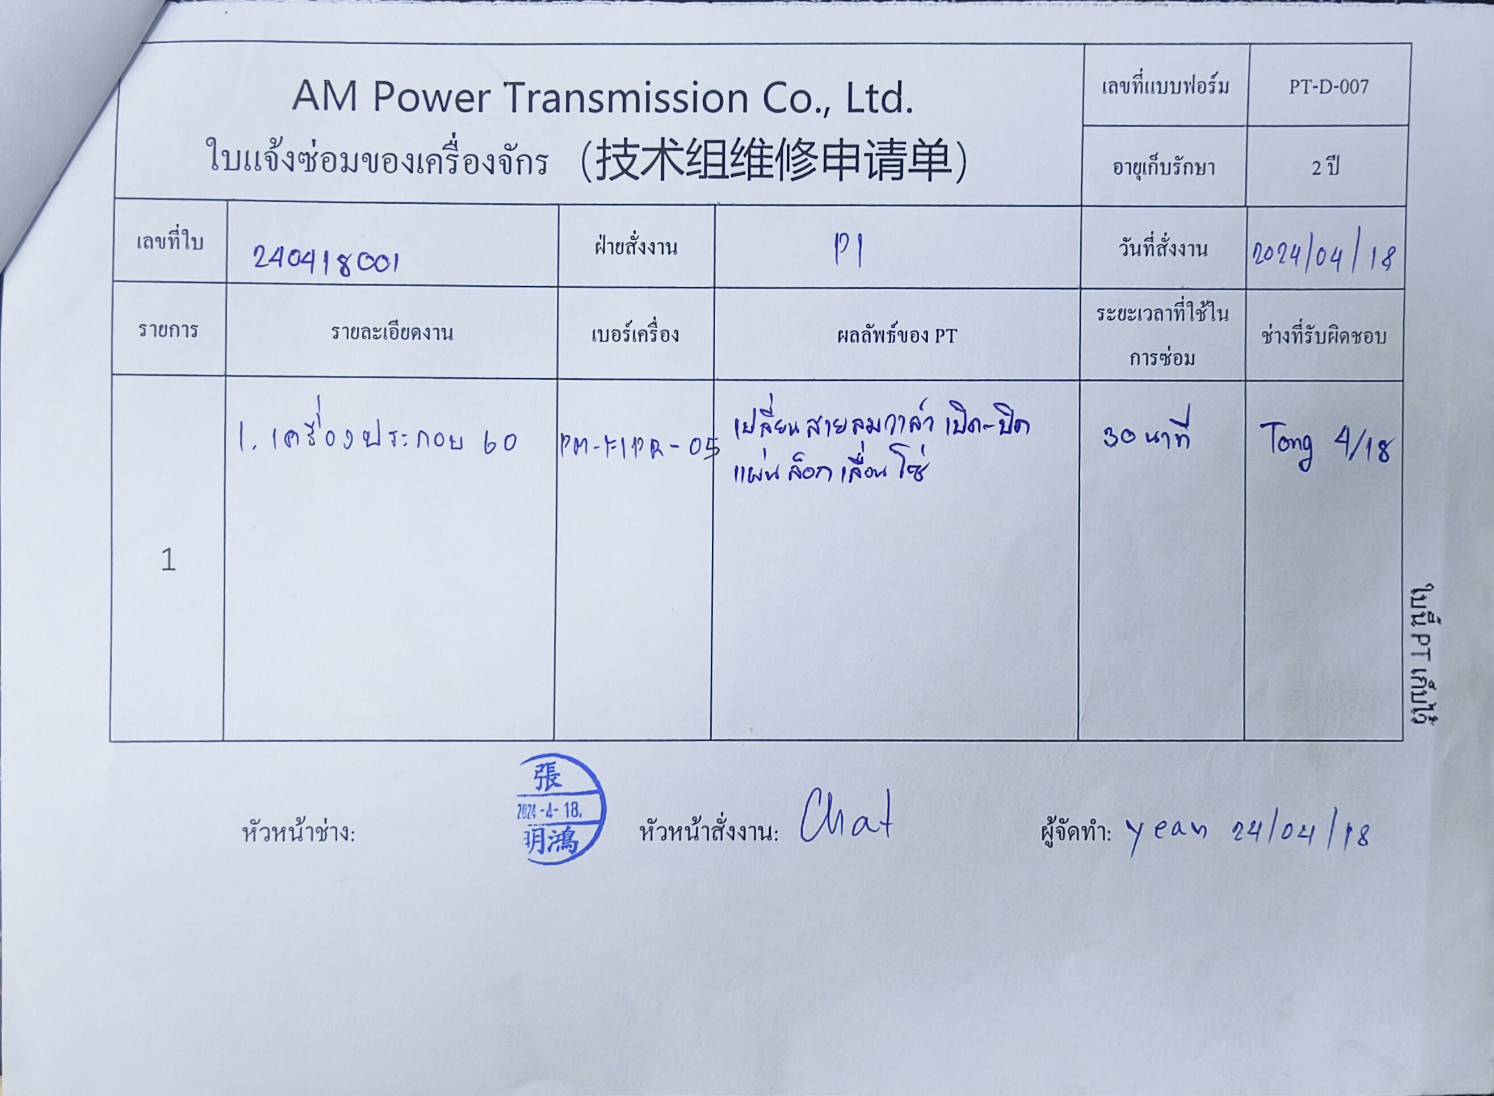 AM Power Transmission Co., Ltd.
ใบแจ้งซ่อมของเครื่องจักร (技术组维修申请单)
เลขที่แบบฟอร์ม PT-D-007
อายุเก็บรักษา 2 ปี
เลขที่ใบ 240418001 ฝ่ายสั่งงาน P1 วันที่สั่งงาน 2024/04/18
รายการ รายละเอียดงาน เบอร์เครื่อง ผลลัพธ์ของ PT ระยะเวลาที่ใช้ใน ช่างที่รับผิดชอบ
การซ่อม
1 1. เครื่องประกอบ 60 เปลี่ยนสายลมวาล์ว เปิด-ปิด 30 นาที Tong 4/18
แผ่นล็อกเลื่อนโซ่
ใบนี้ PT เก็บไว้
หัวหน้าช่าง: 張
2024-4-18.
明鴻
หัวหน้าสั่งงาน: Chat
ผู้จัดทำ: yean 24/04/18